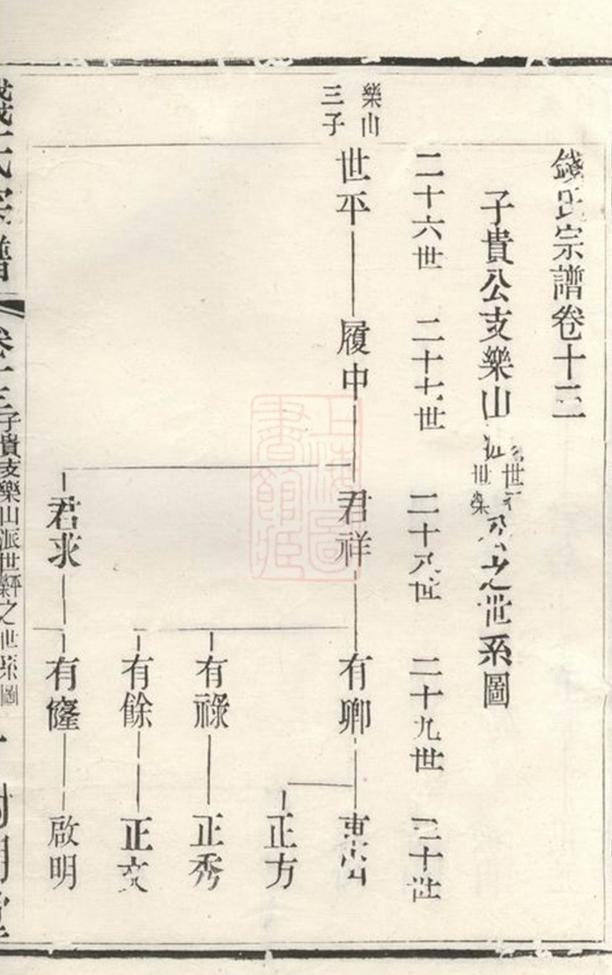 錢氏宗譜卷十三
子貴公支樂山
公之世系圖
二十六世
二十七世
二十八世
二十九世
三十世
樂山
三子
世平
履中
君祥
有卿
正方
有祿
正秀
有餘
正文
君求
有隆
啟明
子貴支樂山派世
之世系圖